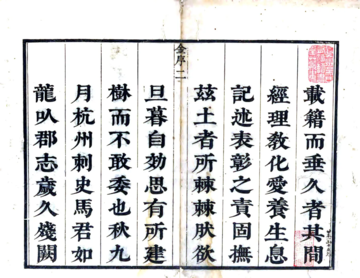 載籍而垂久者其間
經理教化愛養生息
記述表彰之責固撫
茲土者所棘棘肰欲
金序二
旦暮自効思有所建
樹而不敢委也秋九
月杭州刺史馬君如
龍㕥郡志歲久殘闕